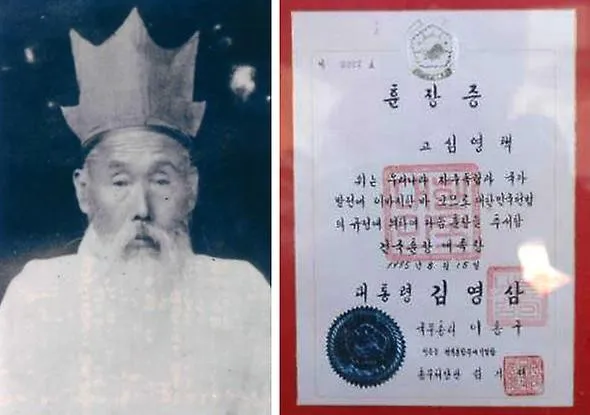 제 호
훈 장 증
고 심 영 택
위는 우리나라 자주독립과 국가
발전에 이바지한 바 크므로 대한민국헌법
의 규정에 의하여 다음 훈장을 추서함
건국훈장 애족장
1995년 8월 15일
대통령 김 영 삼
국무총리 이 홍 구
이증을 건국훈장부에 기입함
총무처장관 김 기